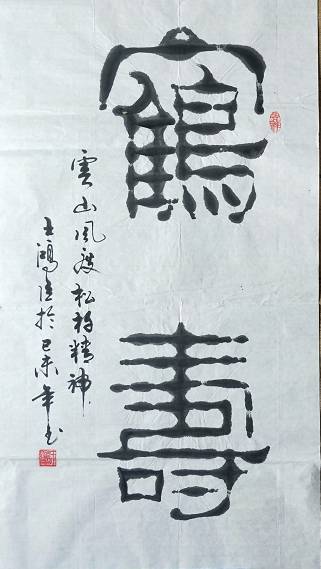 鶴壽
雲山風度松柏精神
王鴻 於己未年書